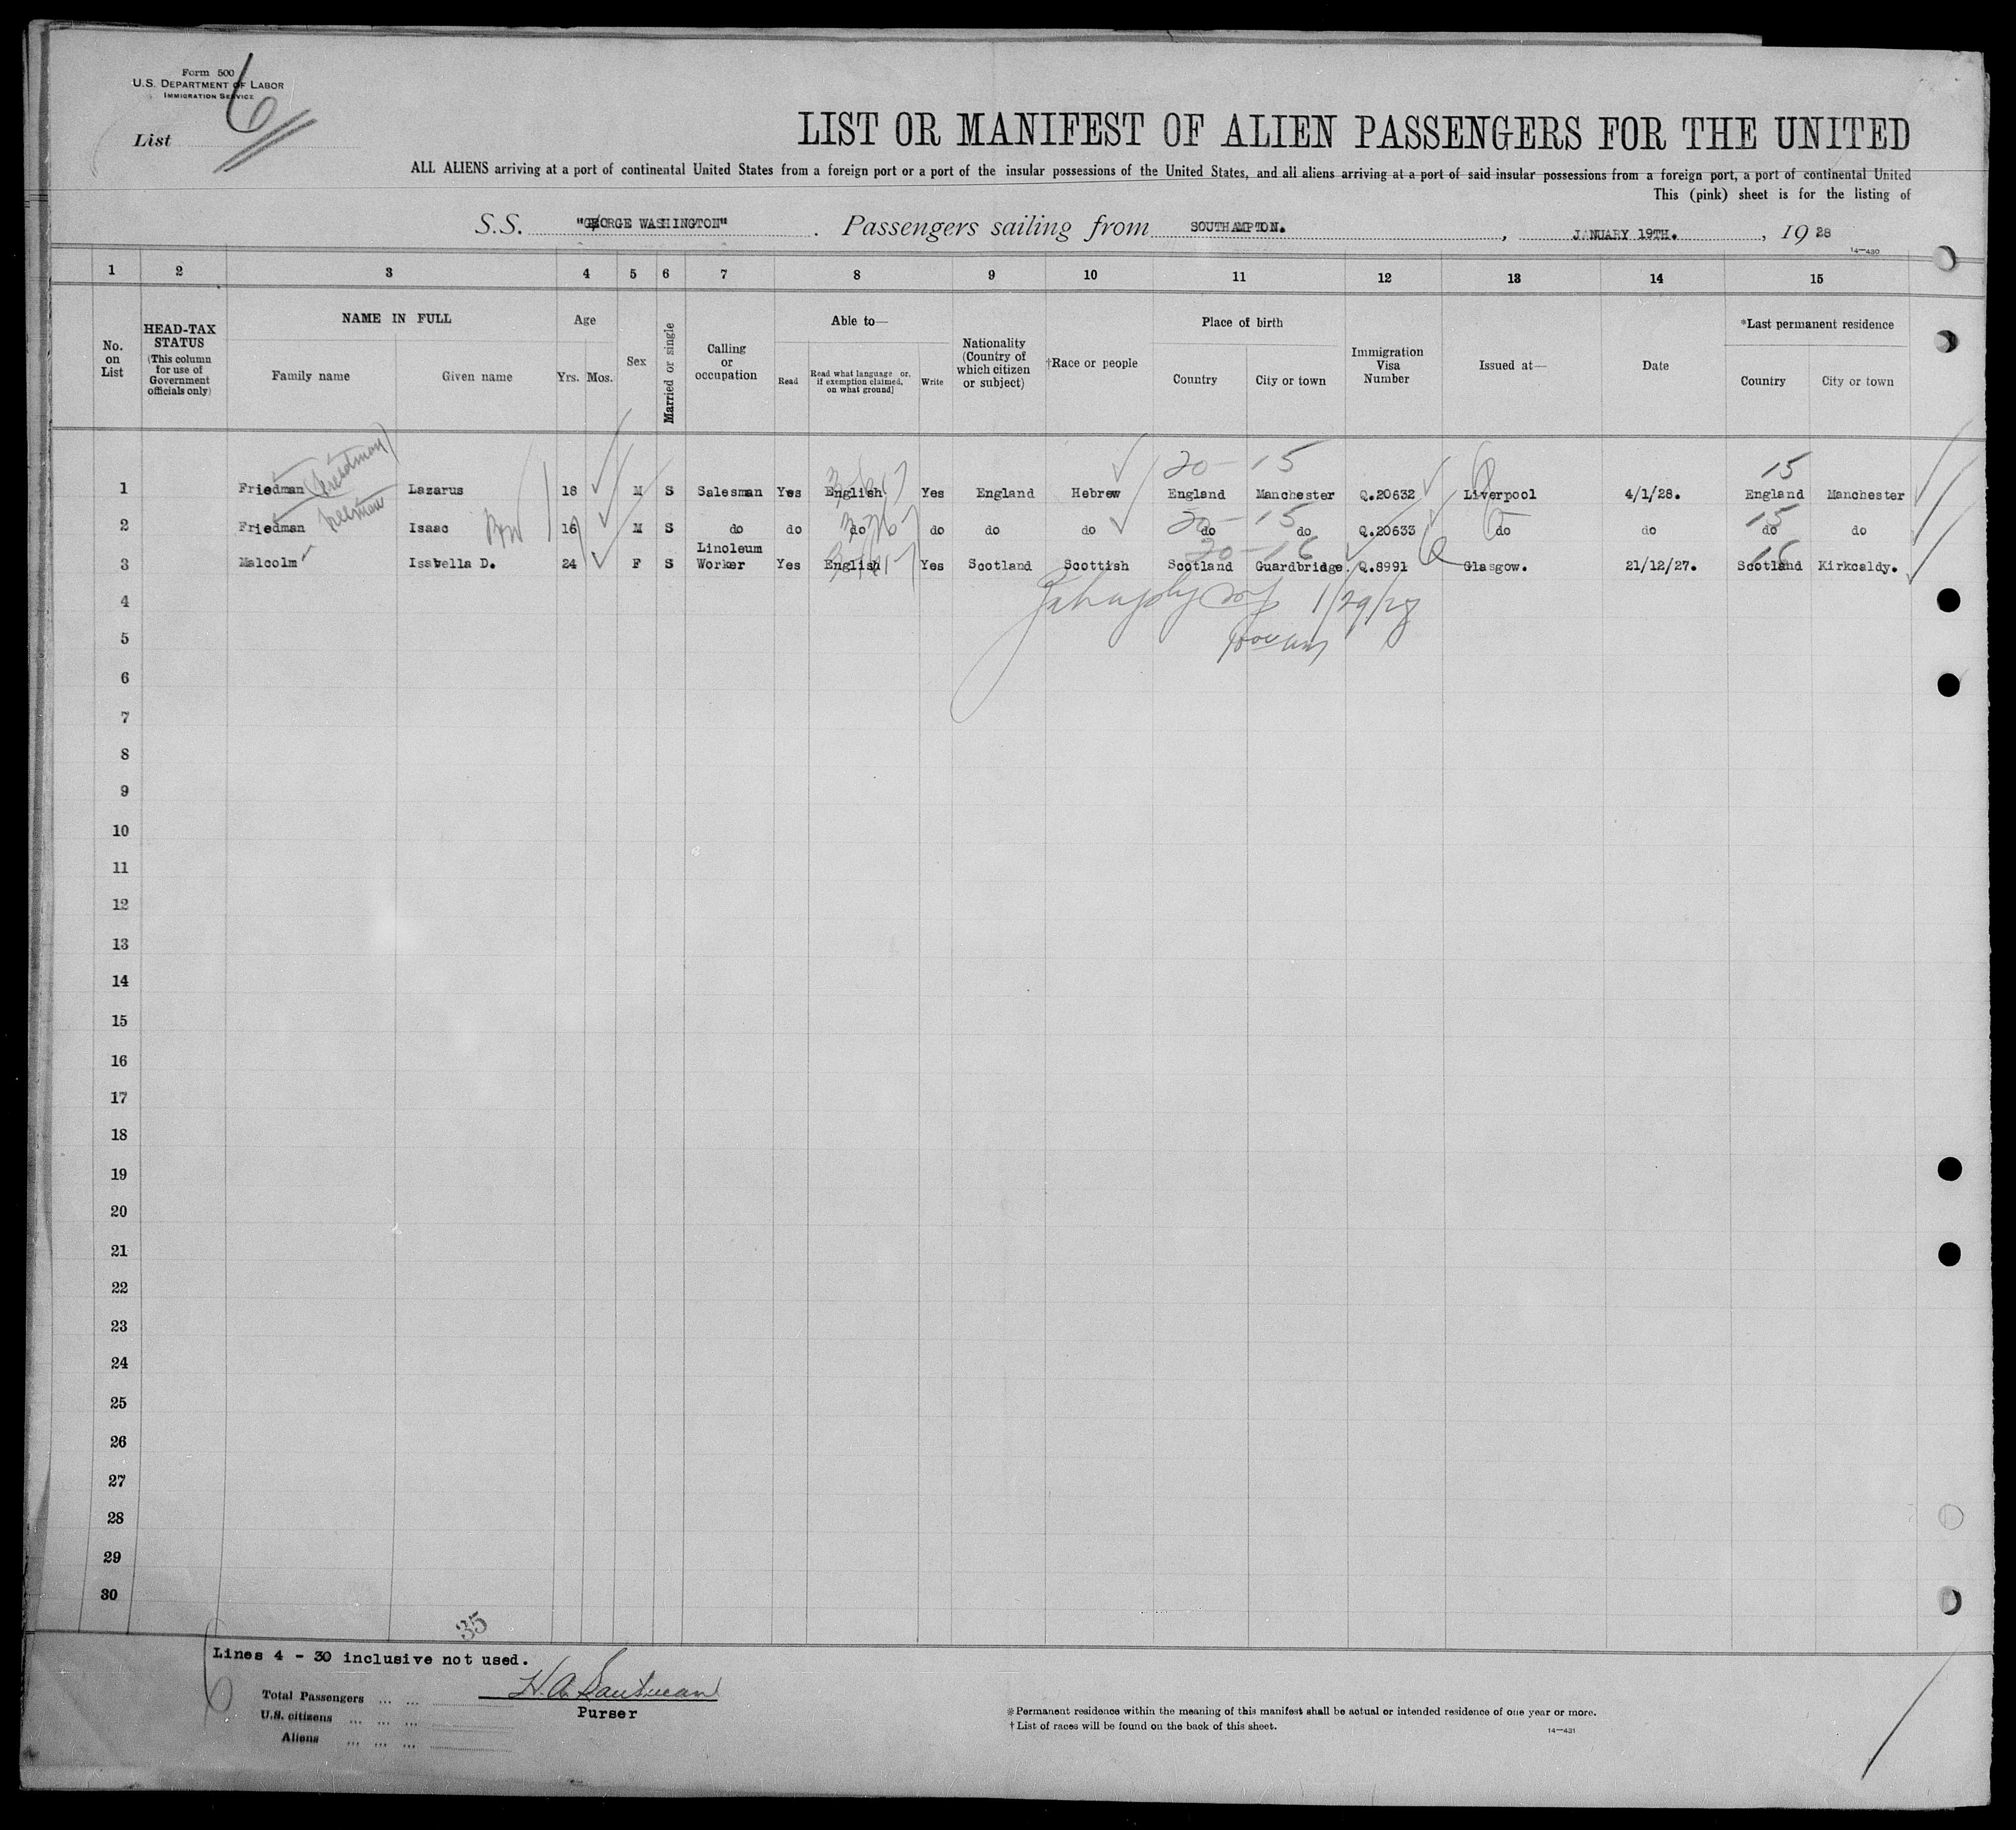 Form 500
U.S. DEPARTMENT OF LABOR
IMMIGRATION SERVICE
List 6
LIST OR MANIFEST OF ALIEN PASSENGERS FOR THE UNITED
ALL ALIENS arriving at a port of continental United States from a foreign port or a port of the insular possessions of the United States, and all aliens arriving at a port of said insular possessions from a foreign port, a port of continental United
This (pink) sheet is for the listing of
S.S. "GEORGE WASHINGTON" . Passengers sailing from SOUTHAMPTON. , JANUARY 19TH. , 1928
14—430
1 2 3 4 5 6 7 8 9 10 11 12 13 14 15
No. on List
HEAD-TAX STATUS (This column for use of Government officials only)
NAME IN FULL
Family name
Given name
Age
Yrs.
Mos.
Sex
Married or single
Calling or occupation
Able to—
Read
Read what language or, if exemption claimed, on what ground]
Write
Nationality (Country of which citizen or subject)
†Race or people
Place of birth
Country
City or town
Immigration Visa Number
Issued at—
Date
*Last permanent residence
Country
City or town
20 - 15 15
1 Friedman Lazarus 18 M S Salesman Yes English Yes England Hebrew England Manchester Q.20632 Liverpool 4/1/28. England Manchester
20 - 15 15
2 Friedman Isaac 16 M S do do do do do do do do Q.20633 do do do do
20 - 16 16
3 Malcolm Isabella D. 24 F S Linoleum Worker Yes English Yes Scotland Scottish Scotland Guardbridge. Q.8991 Glasgow. 21/12/27. Scotland Kirkcaldy.
1/29/28
4
5
6
7
8
9
10
11
12
13
14
15
16
17
18
19
20
21
22
23
24
25
26
27
28
29
30
35
Lines 4 - 30 inclusive not used.
6
Total Passengers ... ...
Purser
U.S. citizens ... ... ...
Aliens ... ... ...
* Permanent residence within the meaning of this manifest shall be actual or intended residence of one year or more.
† List of races will be found on the back of this sheet.
14—431